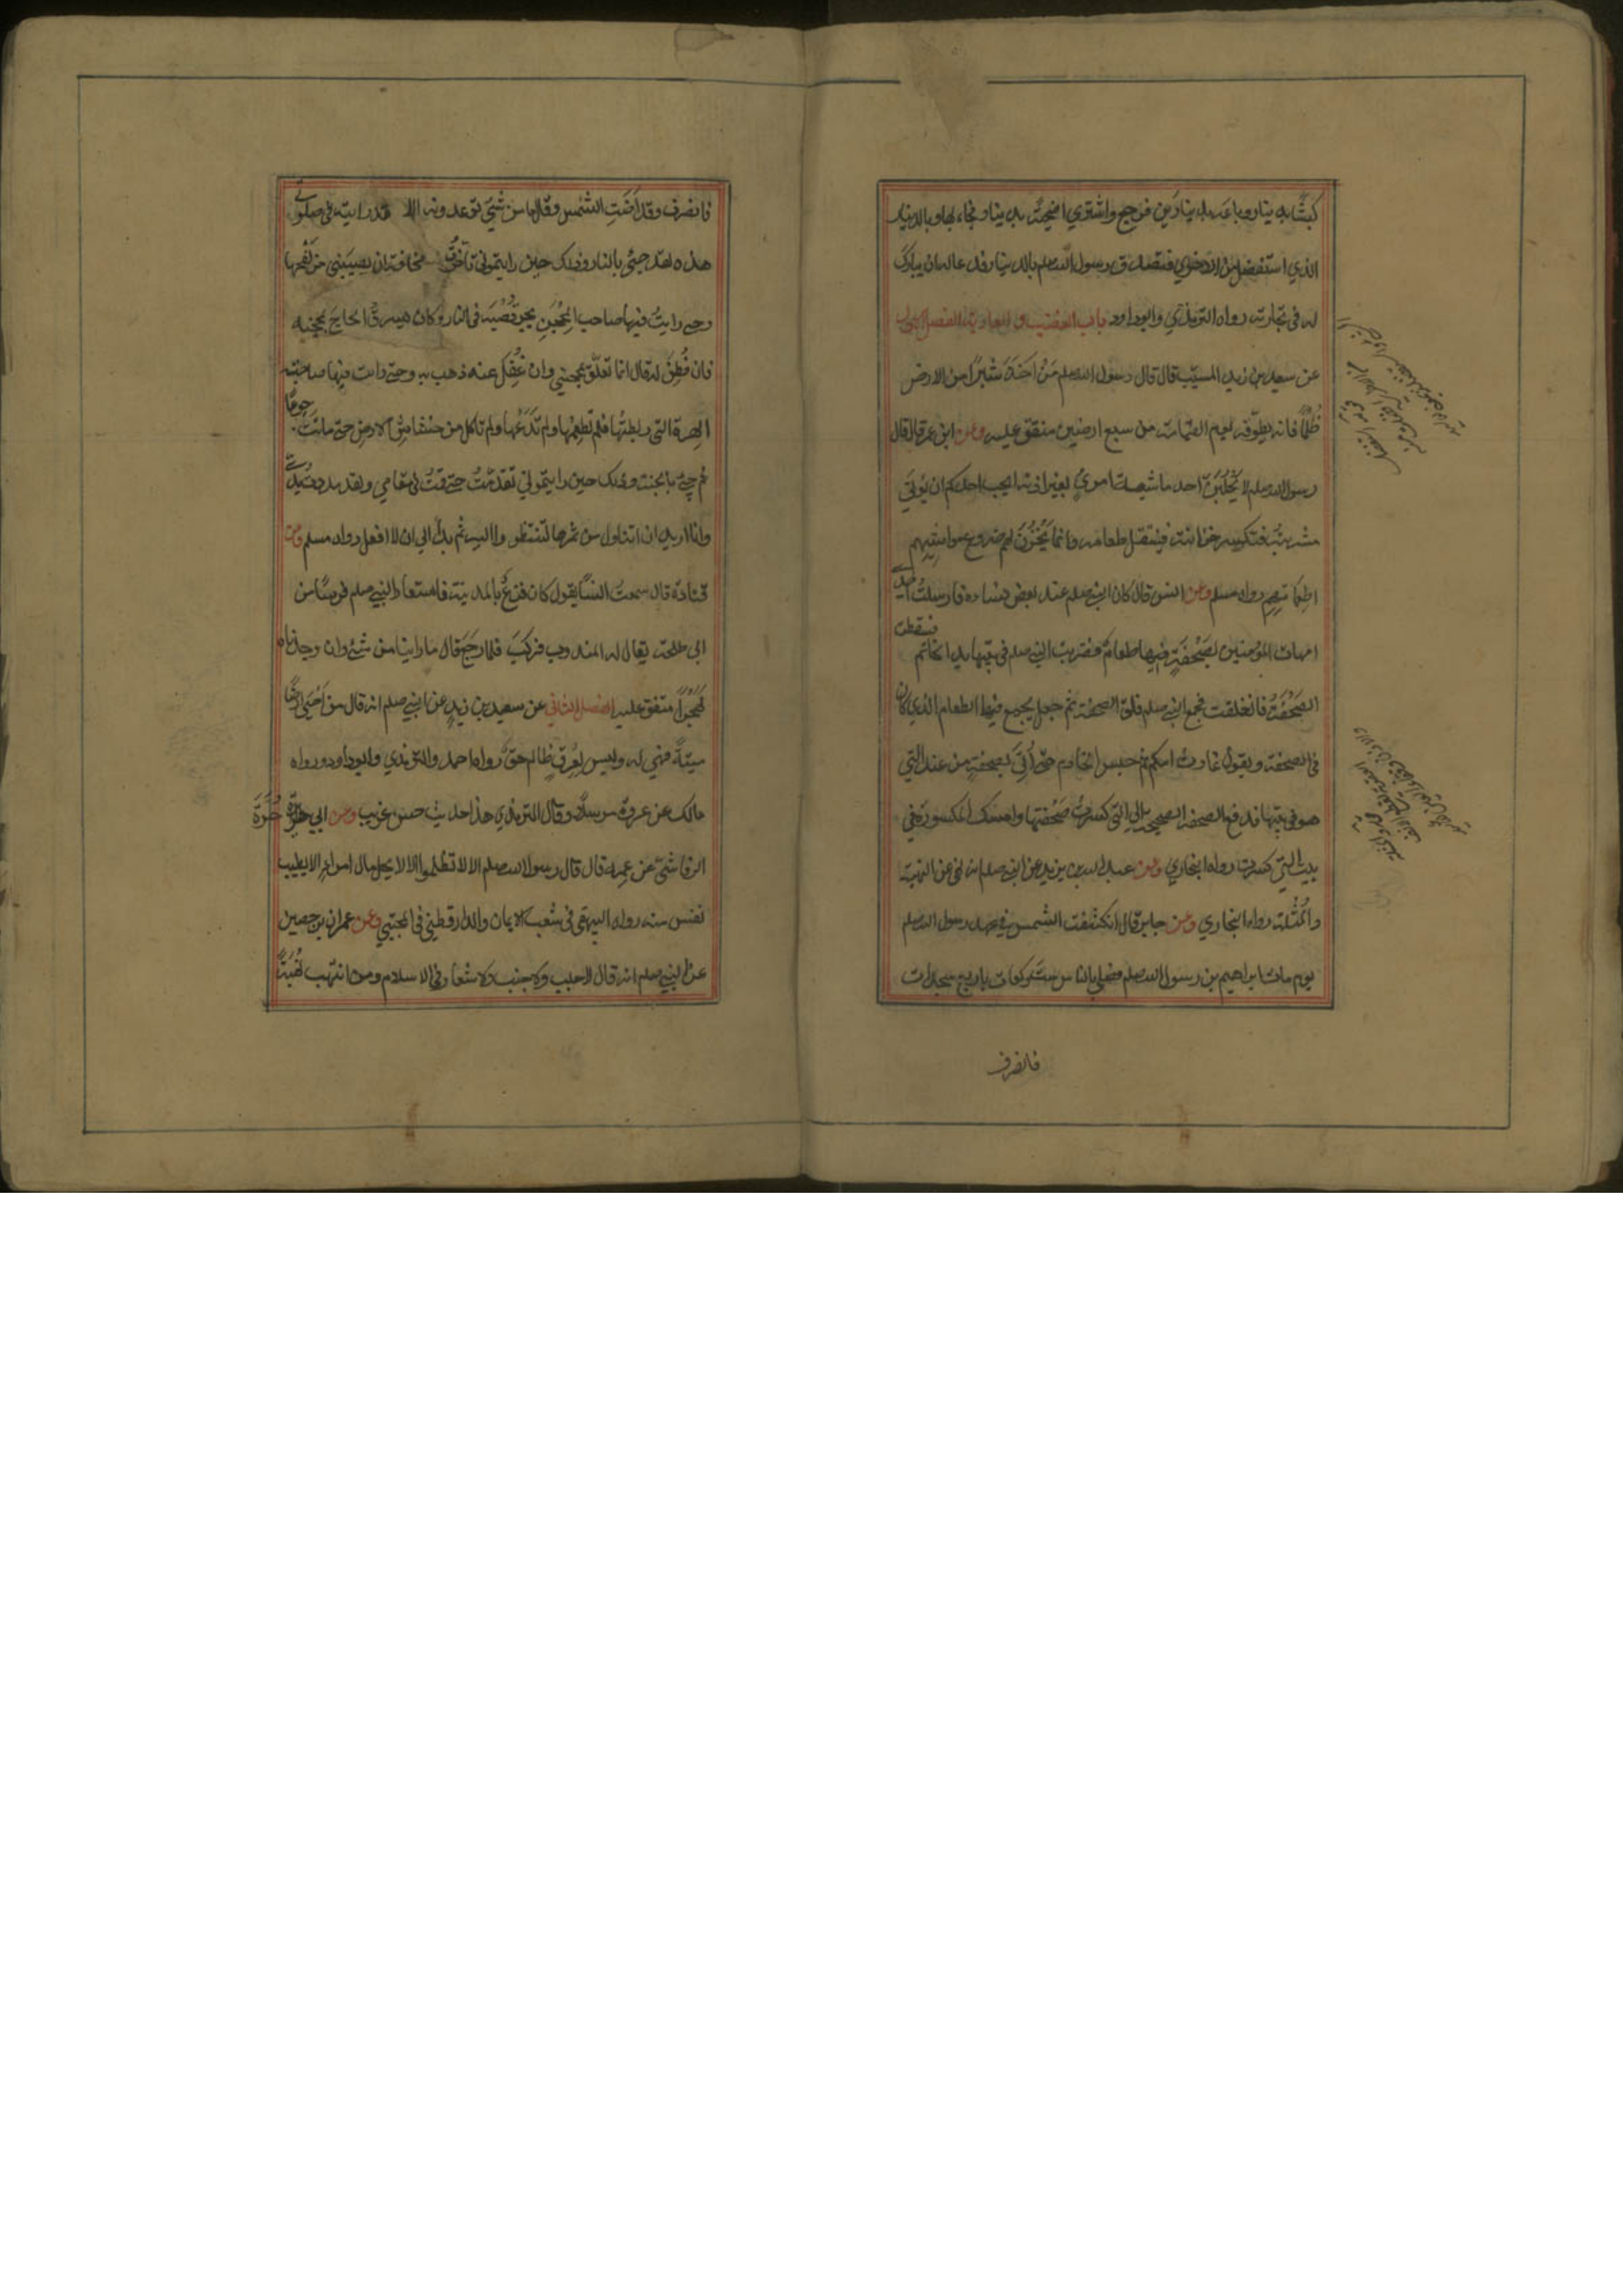 كبشا بدينار وباعه بدينارين فرجع واشتري اضحية بدينار فجاء بها وبالدينار
الذي استفضل من الاخري فتصدق رسول الله صلعم بالدينار فدعا له ان يبارك
له في تجارته رواه الترمذي وابوداود باب الغصب والعارية الفصل الاول
عن سعيد بن زيد المسيّب قال قال رسول الله صلعم مَنْ اَخَذَ شِبْرًا من الارض
ظُلْمًا فانه يطوّقه يوم القيامة من سبع ارضين متفق عليه وعن ابن عمر قال قال
رسول الله صلعم لا يَحْلُبَنَّ احد ماشية امرئٍ بغير اذنه ايحب احدكم ان يُؤتَي
مشربته فتكسر خزانته فينتقل طعامه وانما يَخْزُنُ لهم ضروع مواشيهم
اطعماتهم رواه مسلم وعن انس قال كان النبي صلعم عند بعض نسائه فارسلت احدي
امهات المؤمنين بصَحْفَةٍ فيها طعام فضربت النبي صلعم في بيتها يد الخادم فسقطت
الصَحْفَةُ فانفلقت فجمع النبي صلعم فلق الصحفة ثم جعل يجمع فيها الطعام الذي كان
في الصحفة ويقول غارت امكم ثم حبس الخادم حتّي أُتِيَ بصحفةٍ من عند التي
هو في بيتها فدفع الصحفة الصحيحة الي التي كسرت صَحْفَتها وامسك المكسورة في
بيت التي كسرت رواه البخاري وعن عبد الله بن يزيد عن النبي صلعم انه نهي عن النهبة
والمُثْلة رواه البخاري وعن جابر قال انكسفت الشمس في عهد رسول الله صلعم
يوم مات ابراهيم بن رسول الله صلعم فصلي بالناس ست ركعات باربع سجدات
فانصرف
فانصرف وقد اَضَتِ الشمس وقال ما من شيئ توعدونه الا قد رايته في صلوتي
هذه لقد جيئ بالنار وذلك حين رايتموني تأخّرتُ مخافة ان يصيبني من لَفْحها
وحتي رايتُ فيها صاحب المِحْجَنِ يجر قُصْبَه في النار وكان يسرق الحاجّ بمحجنه
فان فُطِنَ له قال انما تعلّق بمحجني وان غُفِلَ عنه ذهب به وحتي رايت فيها صاحبة
الهرة التي ربطتها فلم تُطعِمْها ولم تَدَعْها ولم تاكل من خشاش الارض حتي ماتت جوعًا
ثم جيئ بالجنة وذلك حين رايتموني تقدّمْتُ حتي قمتُ في مقامي ولقد مددتُ يدي
وانا اريد ان اتناول من ثمرها لتنتظروا اليه ثم بدأ لي ان لا افعل رواه مسلم وعن
قتادة قال سمعتُ انسًا يقول كان فزعٌ بالمدينة فاستعار النبي صلعم فرسًا من
ابي طلحة يقال له المندوب فركبَ فلما رجعَ قال ما راينا من شيئ وان وجدناه
لَبَحْرًا متفق عليه الفصل الثاني عن سعيد بن زيد عن النبي صلعم انه قال من اَحْيَى ارضًا
ميتةً فهي له وليس لعِرقٍ ظالم حقٌّ رواه احمد والترمذي وابوداود ورواه
مالك عن عروة مرسلاً وقال الترمذي هذا حديث حسن غريب وعن ابي حرّة حُرَّةَ
الرقاشيّ عن عمه قال قال رسول الله صلعم الا لا تظلموا الا لا يحل مال امرئ الا بطيب
نفس منه رواه البيهقي في شعب الايمان والدارقطني في المجتبي وعن عمران بن حصين
عن النبي صلعم انه قال لا جلب ولا جنب ولا شغار في الاسلام ومن انتهب نُهْبَةً